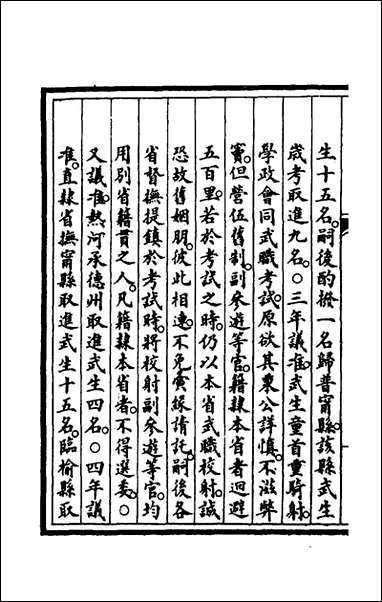 生十五名。嗣後酌撥一名歸普甯縣。該縣武生
歲考取進九名。○三年議准。武生童首重騎射。
學政會同武職考試。原欲其秉公詳慎。不滋弊
竇。但營伍舊制。副參遊等官。籍隸本省者迴避
五百里。若於考試之時。仍以本省武職校射。誠
恐故舊姻朋。彼此相連。不免夤緣請託。嗣後各
省督撫提鎮。於考試時。將校射副參遊等官。均
用別省籍貫之人。凡籍隸本省者。不得選委。○
又議准。熱河承德州取進武生四名。○四年議
准。直隸省撫甯縣取進武生十五名。臨榆縣取